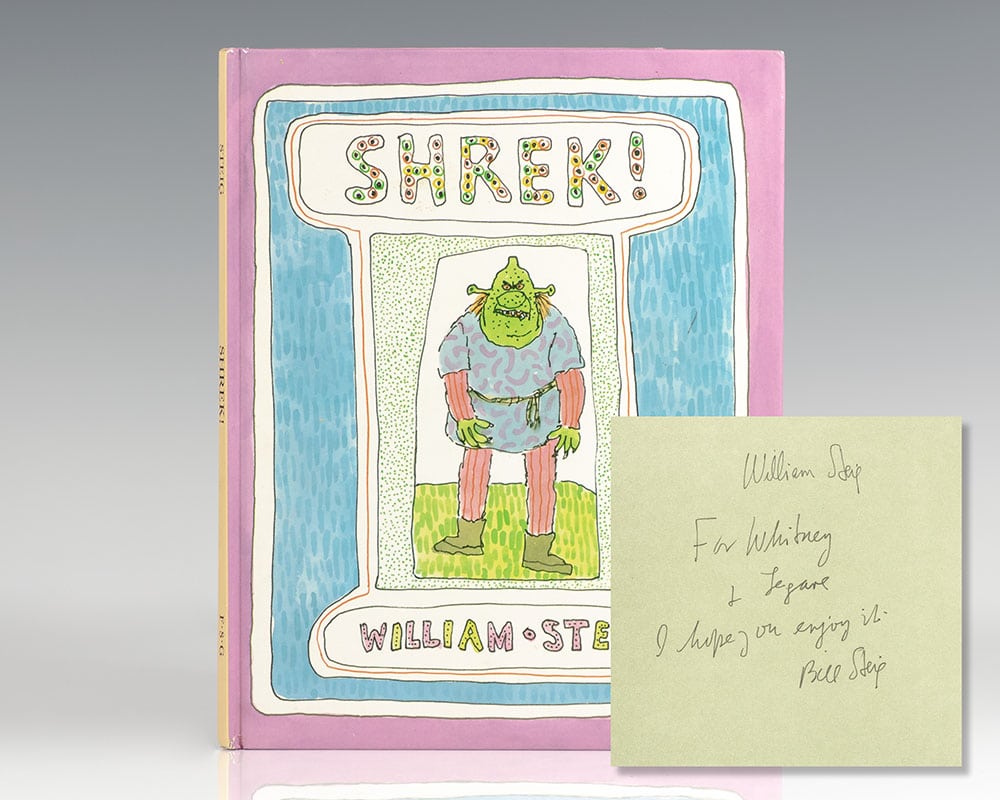 STEIG
SHREK!
FSG
SHREK!
WILLIAM • STE
William Steig
For Whitney
& Legare
I hope you enjoy it.
Bill Steig